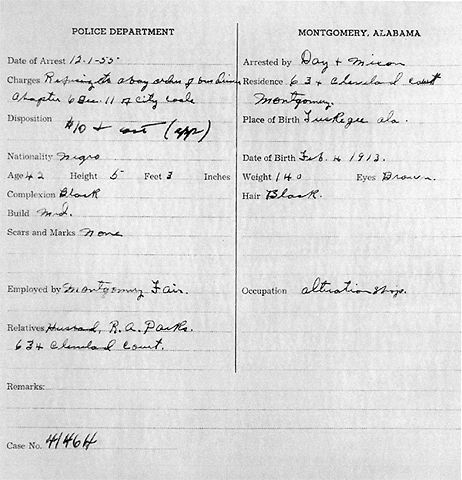 POLICE DEPARTMENT
Date of Arrest 12-1-55
Charges Refusing to obey orders of bus driver
Chapter 6 Sec. 11 of City Code
Disposition $10 + cost (app)
Nationality Negro
Age 42 Height 5 Feet 3 Inches
Complexion Black
Build Med.
Scars and Marks none
Employed by Montgomery Fair.
Relatives Husband, R.A. Parks.
634 Cleveland Court.
Remarks:
Case No. 41464
MONTGOMERY, ALABAMA
Arrested by Day + Mixon
Residence 634 Cleveland Court
Montgomery.
Place of Birth Tuskegee Ala.
Date of Birth Feb. 4 1913.
Weight 140 Eyes Brown.
Hair Black.
Occupation altration shop.